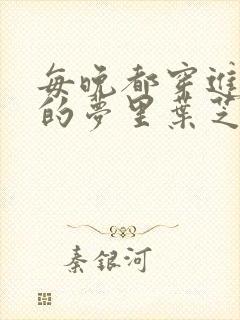 每晚都穿進
的夢里葉芝
秦銀河